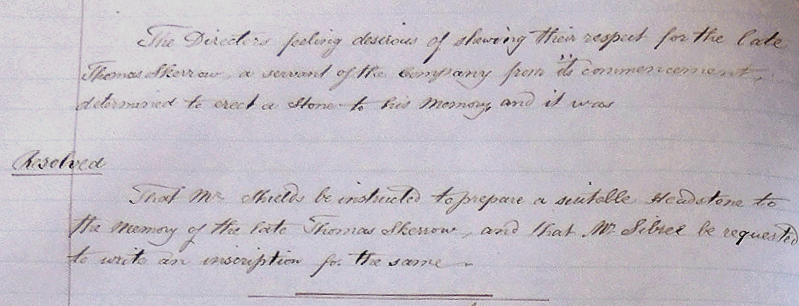 The Directors feeling desirous of shewing their respect for the late
Thomas Skerrow, a servant of the Company from its commencement,
determined to erect a Stone to his Memory, and it was
Resolved
That Mr Shields be instructed to prepare a suitable Headstone to
the Memory of the late Thomas Skerrow, and that Mr Sibree be requested
to write an inscription for the same.